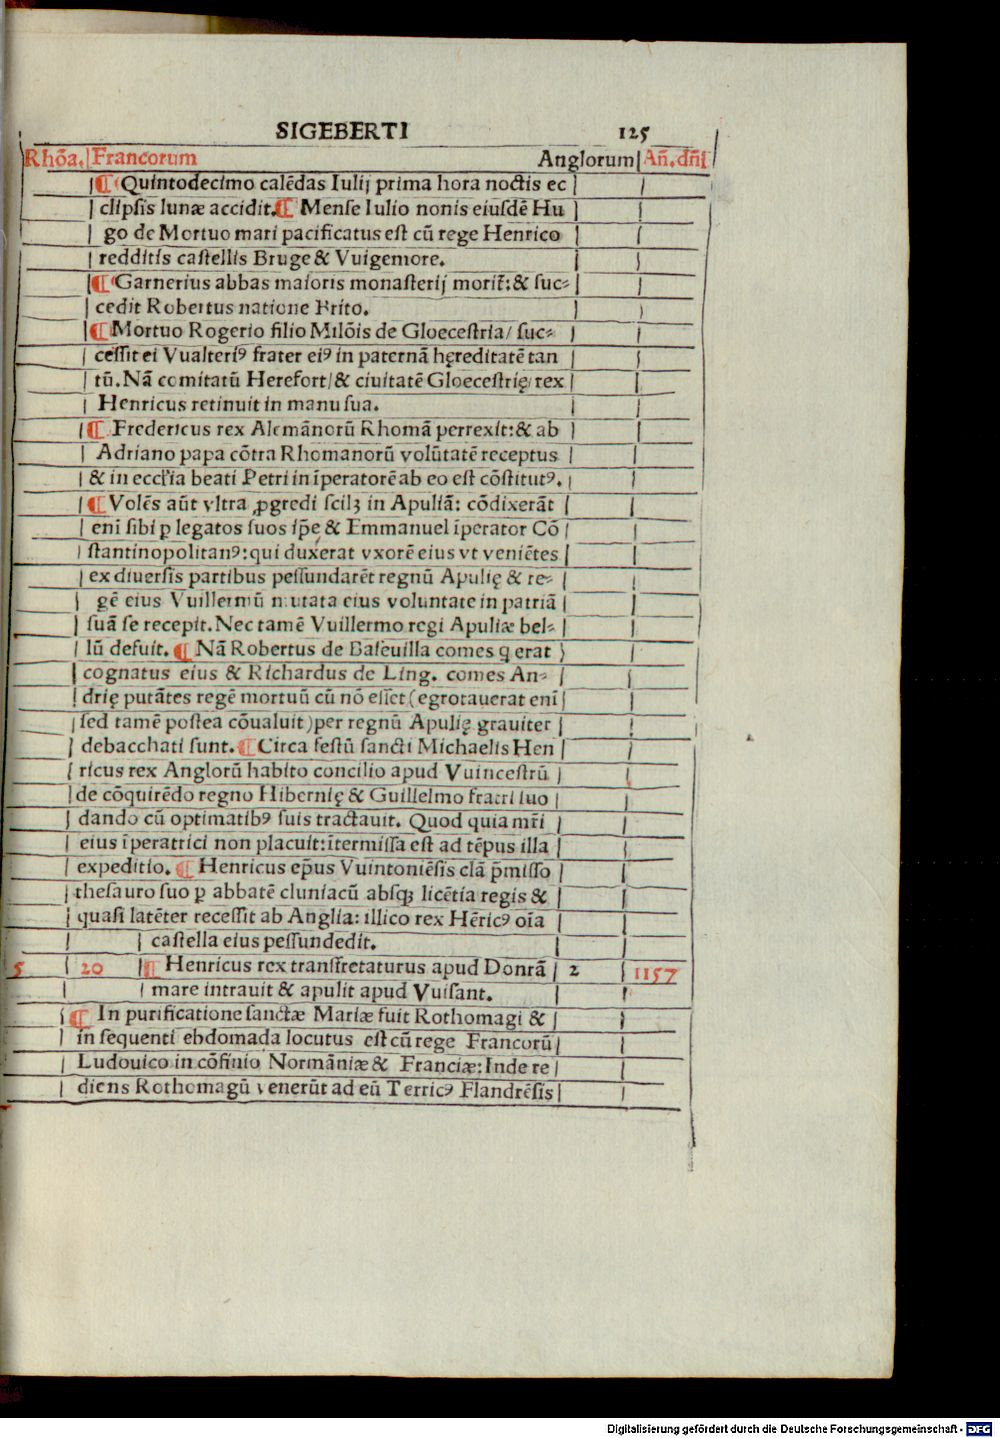 SIGEBERTI 125
Rhōa. Francorum Anglorum Añ. dñi
¶ Quintodecimo calēdas Iulij prima hora noctis ec
clipsis lunæ accidit. ¶ Mense Iulio nonis eiusdē Hu
go de Mortuo mari pacificatus est cū rege Henrico
redditis castellis Bruge & Vuigemore.
¶ Garnerius abbas maioris monasterij morit̄: & suc-
cedit Robertus natione Brito.
¶ Mortuo Rogerio filio Milōis de Gloecestria/ suc-
cessit ei Vualteriꝰ frater eiꝰ in paternā hęreditatē tan
tū. Nā comitatū Herefort/ & ciuitatē Gloecestrię/ rex
Henricus retinuit in manu sua.
¶ Fredericus rex Alemānorū Rhomā perrexit: & ab
Adriano papa cōtra Rhomanorū volūtatē receptus
& in eccľia beati Petri in īperatorē ab eo est cōstitutꝰ.
¶ Volēs aūt vltra ꝓgredi scilꝫ in Apuliā: cōdixerāt
enī sibi ꝑ legatos suos ip̄e & Emmanuel īperator Cō
stantinopolitanꝰ: qui duxerat vxorē eius vt veniētes
ex diuersis partibus pessundarēt regnū Apulię & re-
gē eius Vuillermū mutata eius voluntate in patriā
suā se recepit. Nec tamē Vuillermo regi Apuliæ bel-
lū defuit. ¶ Nā Robertus de Baseuilla comes q̄ erat
cognatus eius & Richardus de Ling. comes An-
drię putātes regē mortuū cū nō esset (egrotauerat enī
sed tamē postea cōualuit) per regnū Apulię grauiter
debacchati sunt. ¶ Circa festū sancti Michaelis Hen
ricus rex Anglorū habito concilio apud Vuincestrū
de cōquirēdo regno Hibernię & Guillelmo fratri suo
dando cū optimatibꝰ suis tractauit. Quod quia mr̄i
eius īperatrici non placuit: ītermissa est ad tēpus illa
expeditio. ¶ Henricus ep̄us Vuintoniēsis clā p̄misso
thesauro suo ꝑ abbatē cluniacū absqꝫ licētia regis &
quasi latēter recessit ab Anglia: illico rex Hēricꝰ oīa
castella eius pessundedit.
5 20 ¶ Henricus rex transfretaturus apud Donrā 2 1157
mare intrauit & apulit apud Vuisant.
¶ In purificatione sanctæ Mariæ fuit Rothomagi &
in sequenti ebdomada locutus est cū rege Francorū
Ludouico in cōfinio Normāniæ & Franciæ: Inde re
diens Rothomagū venerūt ad eū Terricꝰ Flandrēsis
Digitalisierung gefördert durch die Deutsche Forschungsgemeinschaft - DFG